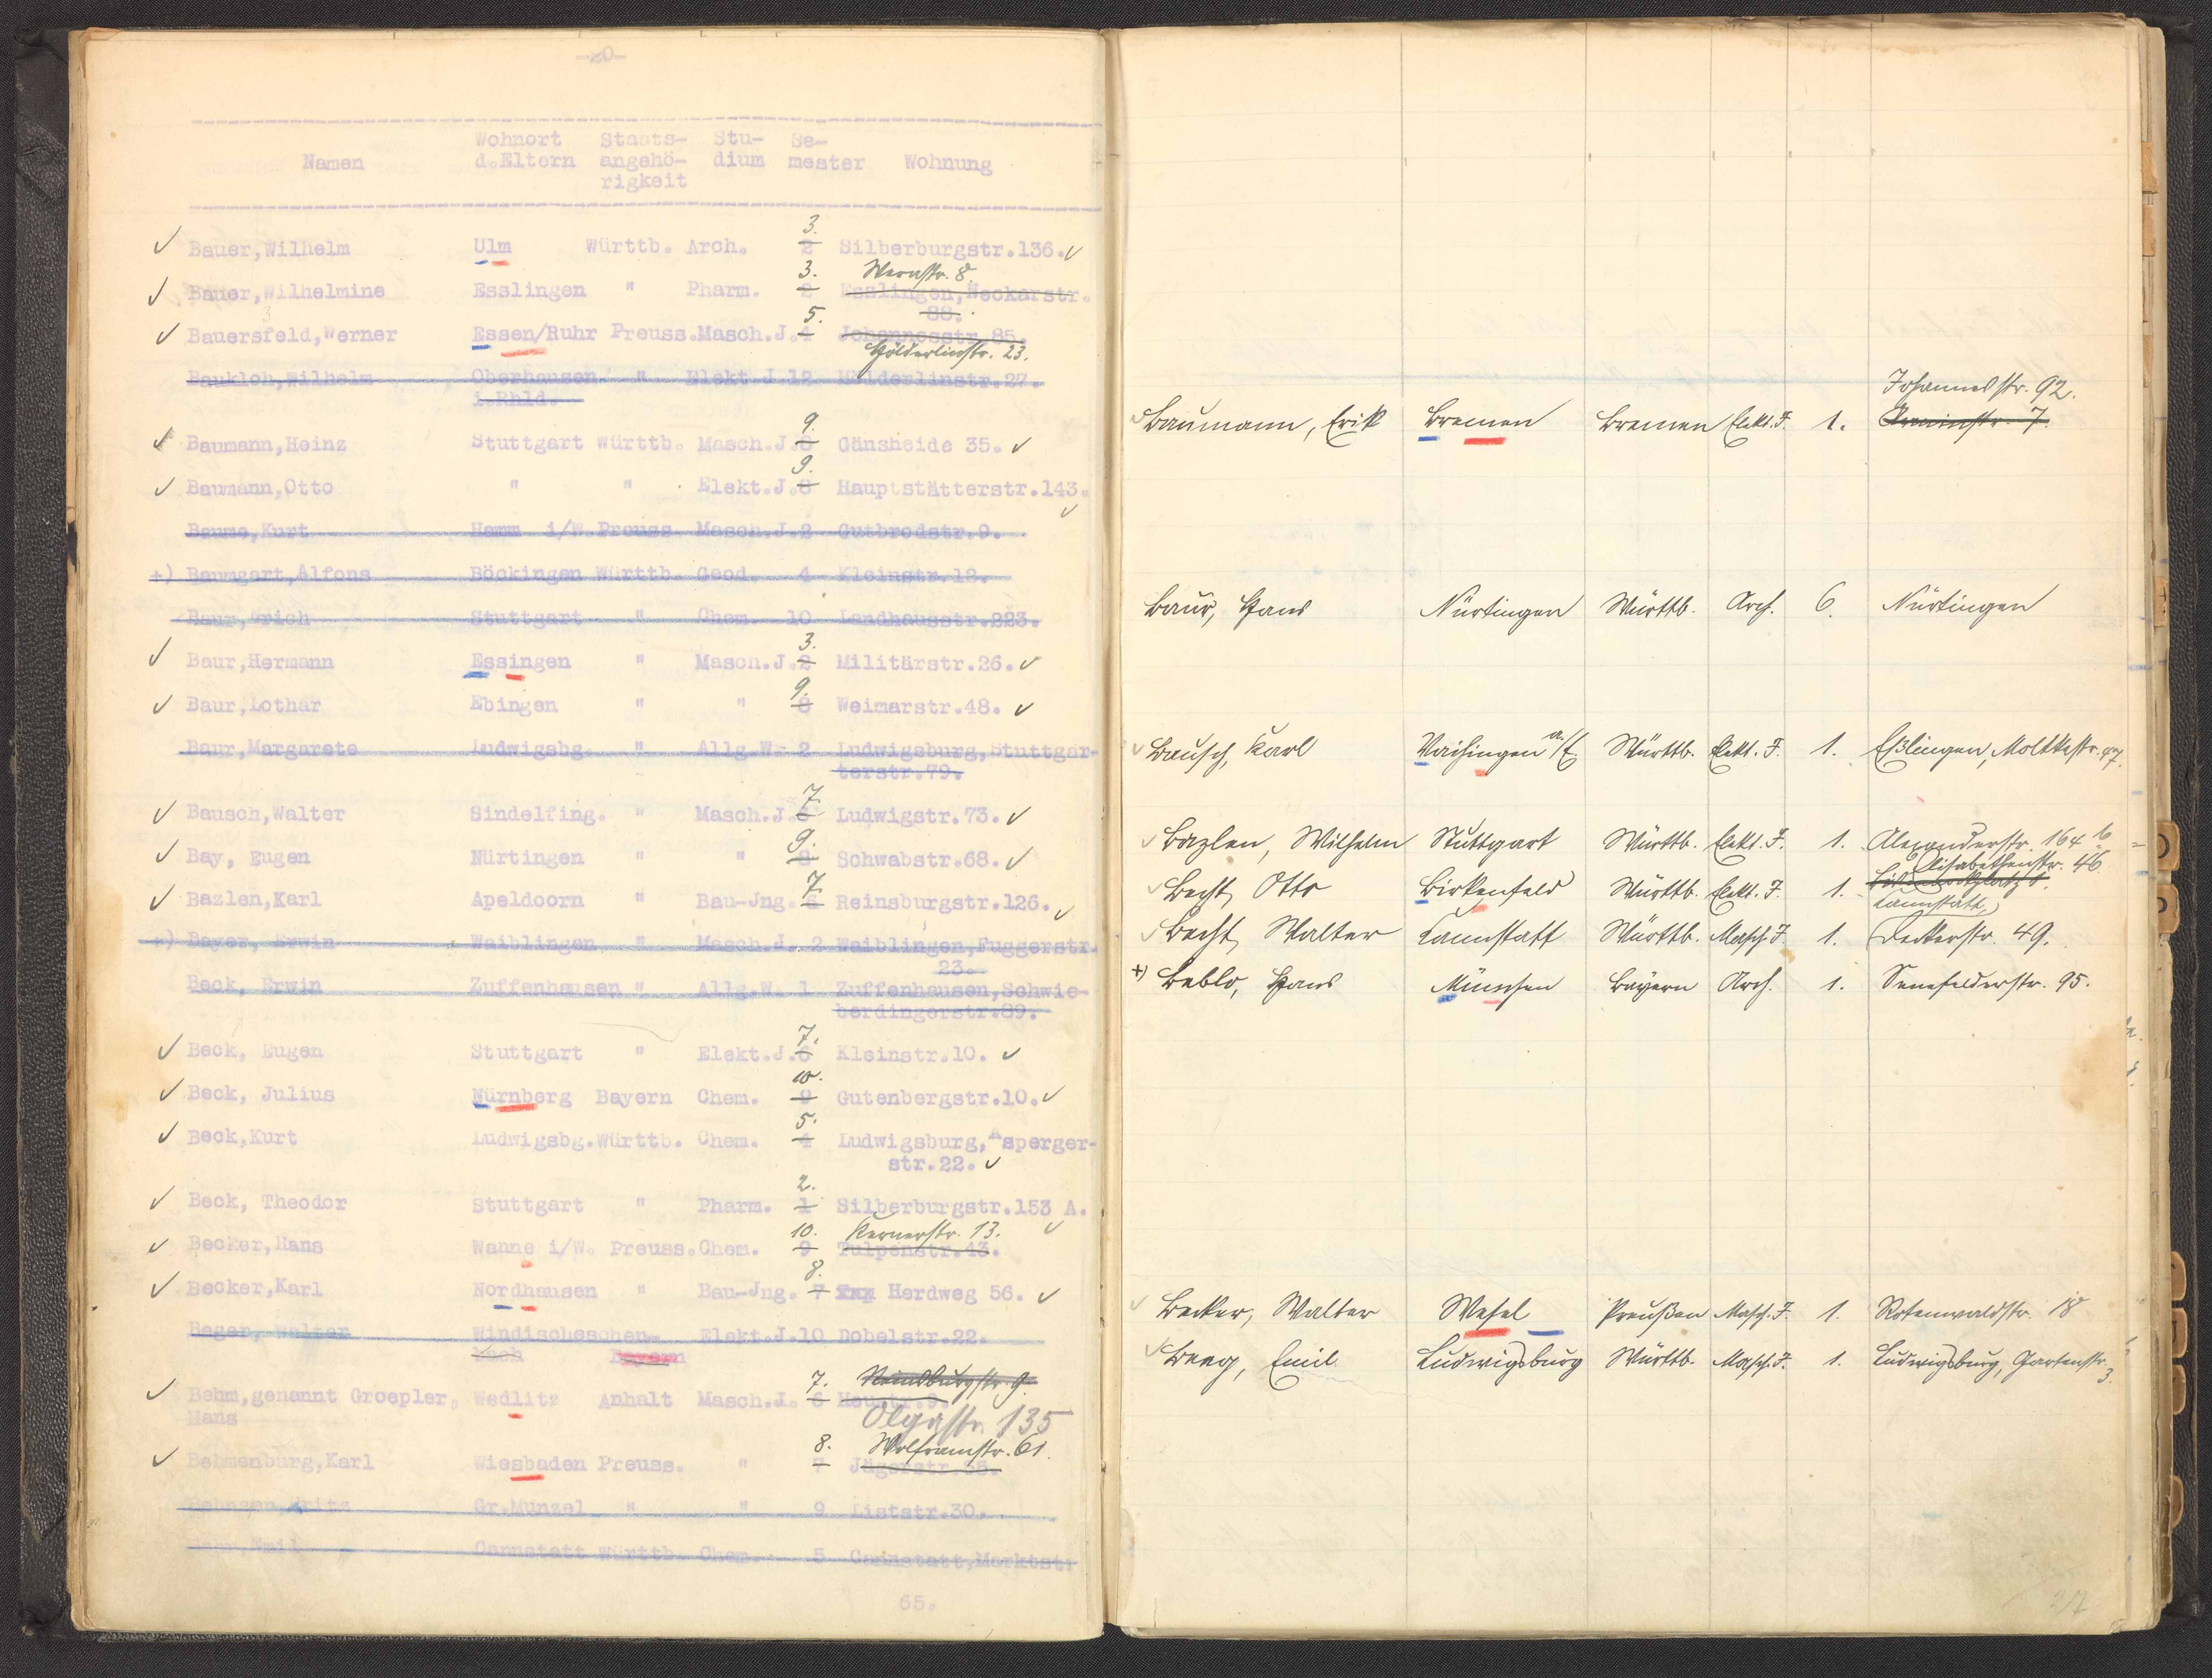 -20-
Wohnort Staats- Stu- Se-
Namen d.Eltern angehö- dium mester Wohnung
rigkeit
3.
Bauer,Wilhelm Ulm Württb. Arch. 2 Silberburgstr.136.
3. Wernstr. 8
Bauer,Wilhelmine Esslingen " Pharm. 2 Esslingen,Neckarstr.
88.
5.
Bauersfeld,Werner Essen/Ruhr Preuss.Masch.J.4 Johannesstr.85.
Hölderlinstr. 23.
Baukloh,Wilhelm Oberhausen " Elekt.J.12 Hölderlinstr.27.
i.Rhld.
9.
Baumann,Heinz Stuttgart Württb. Masch.J.8 Gänsheide 35.
9.
Baumann,Otto " " Elekt.J.8 Hauptstätterstr.143.
Baume,Kurt Hamm i/W.Preuss Masch.J.2 Gutbrodstr.9.
+) Baumgart,Alfons Böckingen Württb. Geod. 4 Kleinstr.12.
Baur,Erich Stuttgart " Chem. 10 Landhausstr.223.
3.
Baur,Hermann Essingen " Masch.J.2 Militärstr.26.
9.
Baur,Lothar Ebingen " " 8 Weimarstr.48.
Baur,Margarete Ludwigsbg. " Allg.W. 2 Ludwigsburg,Stuttgar-
terstr.79.
7.
Bausch,Walter Sindelfing. " Masch.J.6 Ludwigstr.73.
9.
Bay, Eugen Nürtingen " " 8 Schwabstr.68.
7.
Bazlen,Karl Apeldoorn " Bau-Jng.6 Reinsburgstr.126.
+) Bayer, Erwin Waiblingen " Masch.J. 2 Waiblingen,Fuggerstr.
23.
Beck, Erwin Zuffenhausen " Allg.W. 1 Zuffenhausen,Schwie-
berdingerstr.89.
7.
Beck, Eugen Stuttgart " Elekt.J.6 Kleinstr.10.
10.
Beck, Julius Nürnberg Bayern Chem. 9 Gutenbergstr.10.
5.
Beck,Kurt Ludwigsbg.Württb. Chem. 4 Ludwigsburg,Asperger-
str.22.
2.
Beck, Theodor Stuttgart " Pharm. 1 Silberburgstr.153 A.
10. Kernerstr. 13.
Becker,Hans Wanne i/W. Preuss.Chem. 9 Tulpenstr.43.
8.
Becker,Karl Nordhausen " Bau-Jng. 7 Herdweg 56.
Beger, Walter Windischeschen- Elekt.J.10 Dobelstr.22.
bach Bayern
7.
Behm,genannt Groepler, Wedlitz Anhalt Masch.J. 6 Heustr.9.
Hans Olgastr. 135
8. Wolframstr. 61.
Behmenburg,Karl Wiesbaden Preuss. " 7 Jägerstr.
Fritz Gr.Munzel " " 9 Liststr.30.
Emil Cannstatt Württb Chem. 5 Cannstatt,Marktst.
65.
Johannesstr. 92.
Baumann, Erik Bremen Bremen Elekt. J. 1. Arminstr. 7.
Baur, Hans Nürtingen Württb. Arch. 6. Nürtingen
Bausch, Karl Vaihingen a/E Württb. Elekt. J. 1. Eßlingen, Moltkestr. 47.
Bazlen, Wilhelm Stuttgart Württb. Elekt. J. 1. Alexanderstr. 164 b
Elisabethenstr. 46
Becht, Otto Birkenfeld Württb. Elekt. J. 1.
Cannstatt,
Becht, Walter Cannstatt Württb. Masch. J. 1. Deckerstr. 49.
+) Beblo, Hans München Bayern Arch. 1. Senefelderstr. 95.
Becker, Walter Wesel Preußen Masch. J. 1. Rotenwaldstr. 18
Beeg, Emil Ludwigsburg Württb. Masch. J. 1. Ludwigsburg, Gartenstr.
3.
27